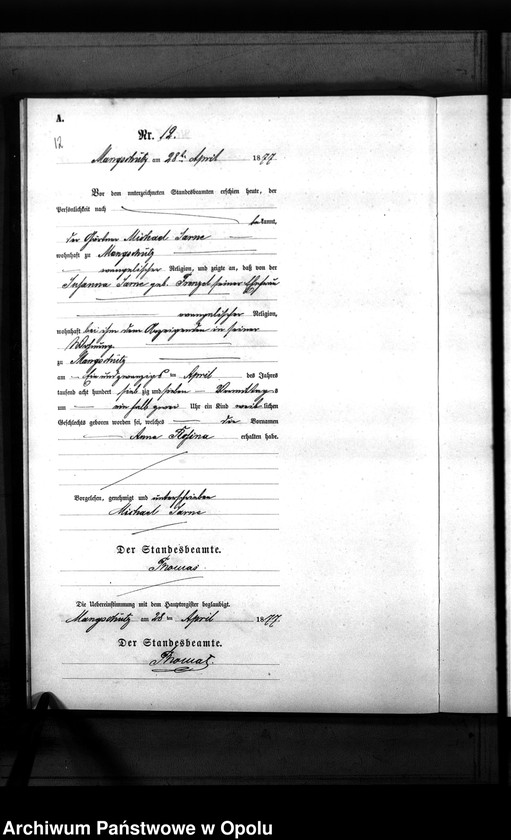 A.
12
Nr. 12.
Mangschütz am 28ten April 1877
Vor dem unterzeichneten Standesbeamten erschien heute, der
Persönlichkeit nach
bekannt,
der Gärtner Michael Sarne
wohnhaft zu Mangschütz
evangelischer Religion, und zeigte an, daß von der
Susanna Sarne geb. seiner Ehefrau
evangelischer Religion,
wohnhaft bei ihm dem Anzeigenden in seiner
Wohnung
zu Mangschütz
am ein und zwanzigs ten April des Jahres
tausend acht hundert sieb zig und sieben Vormittags
um ein halb Uhr ein Kind weib lichen
Geschlechts geboren worden sei, welches die Vornamen
Anna Rosina erhalten habe.
Vorgelesen, genehmigt und unterschrieben
Michael Sarne
Der Standesbeamte.
Thomas
Die Uebereinstimmung mit dem Hauptregister beglaubigt.
Mangschütz am 28 ten April 1877.
Der Standesbeamte.
Thomas.
Archiwum Państwowe w Opolu